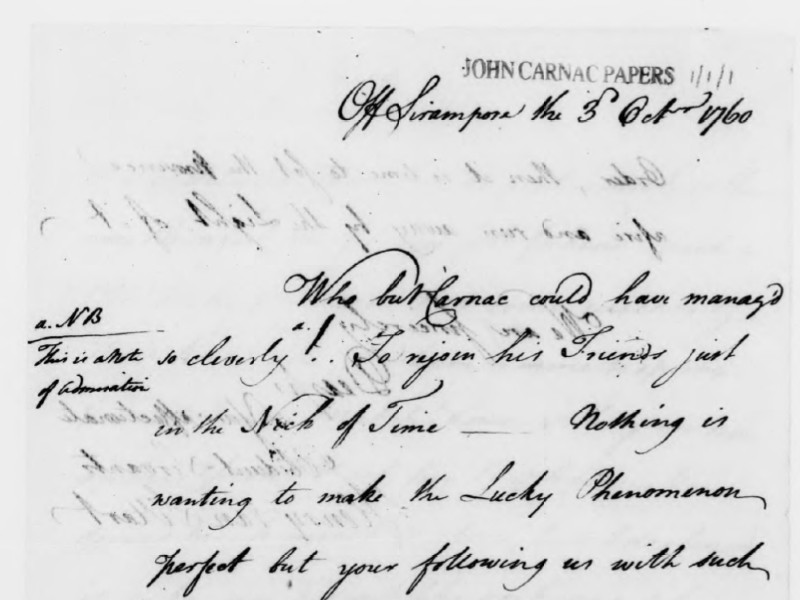 JOHN CARNAC PAPERS 1/1/1
Off Sirampore the 3d Octr 1760
Who but Carnac could have manag'd
a. NB
This is a Note
of Admiration
so cleverly a. ! . . To rejoin his Friends just
in the Nick of Time — Nothing is
wanting to make the Lucky Phenomenon
perfect but your following us with such